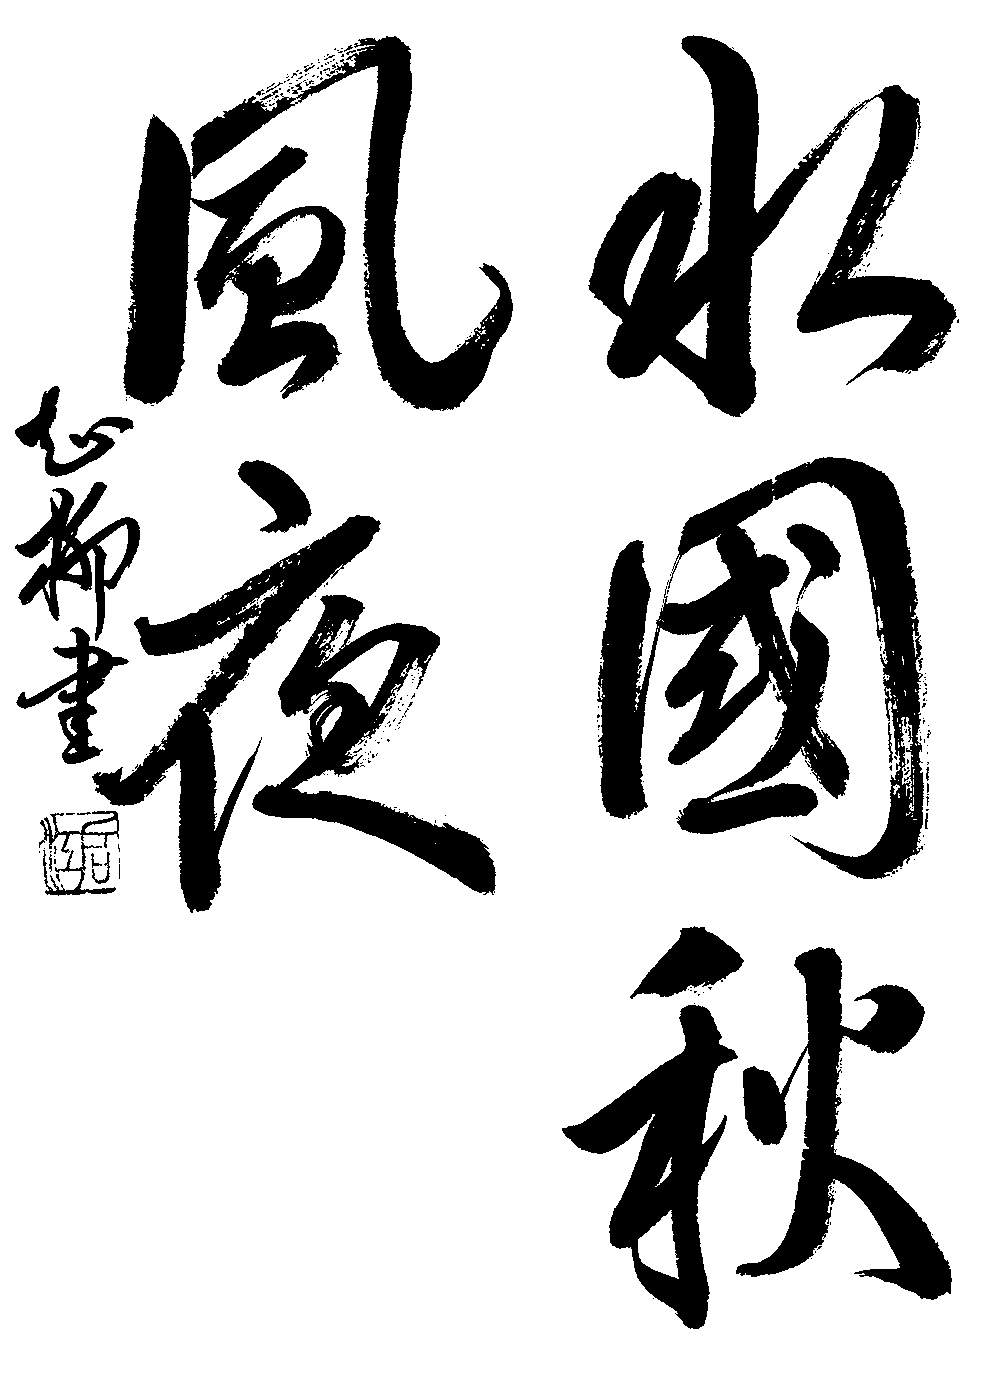 水國秋
風夜
柳書